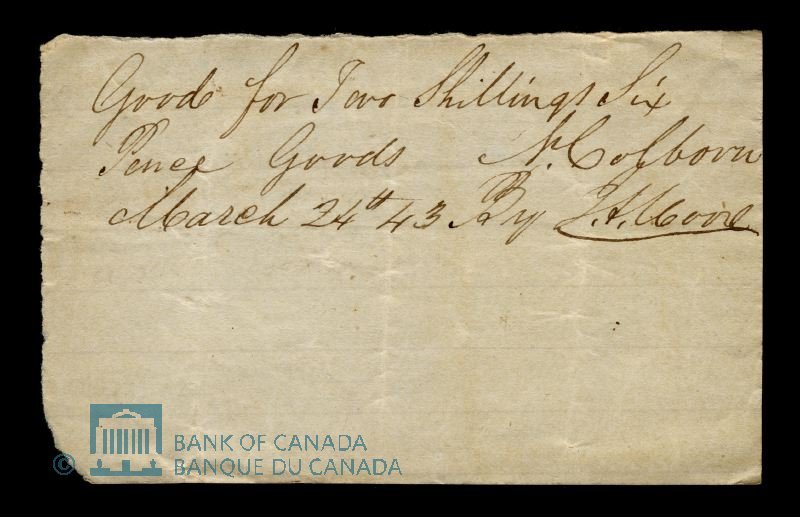 Good for Two Shillings Six
Pence Goods N. Colborn
March 24th 43 By J. H. Moore
© BANK OF CANADA
BANQUE DU CANADA